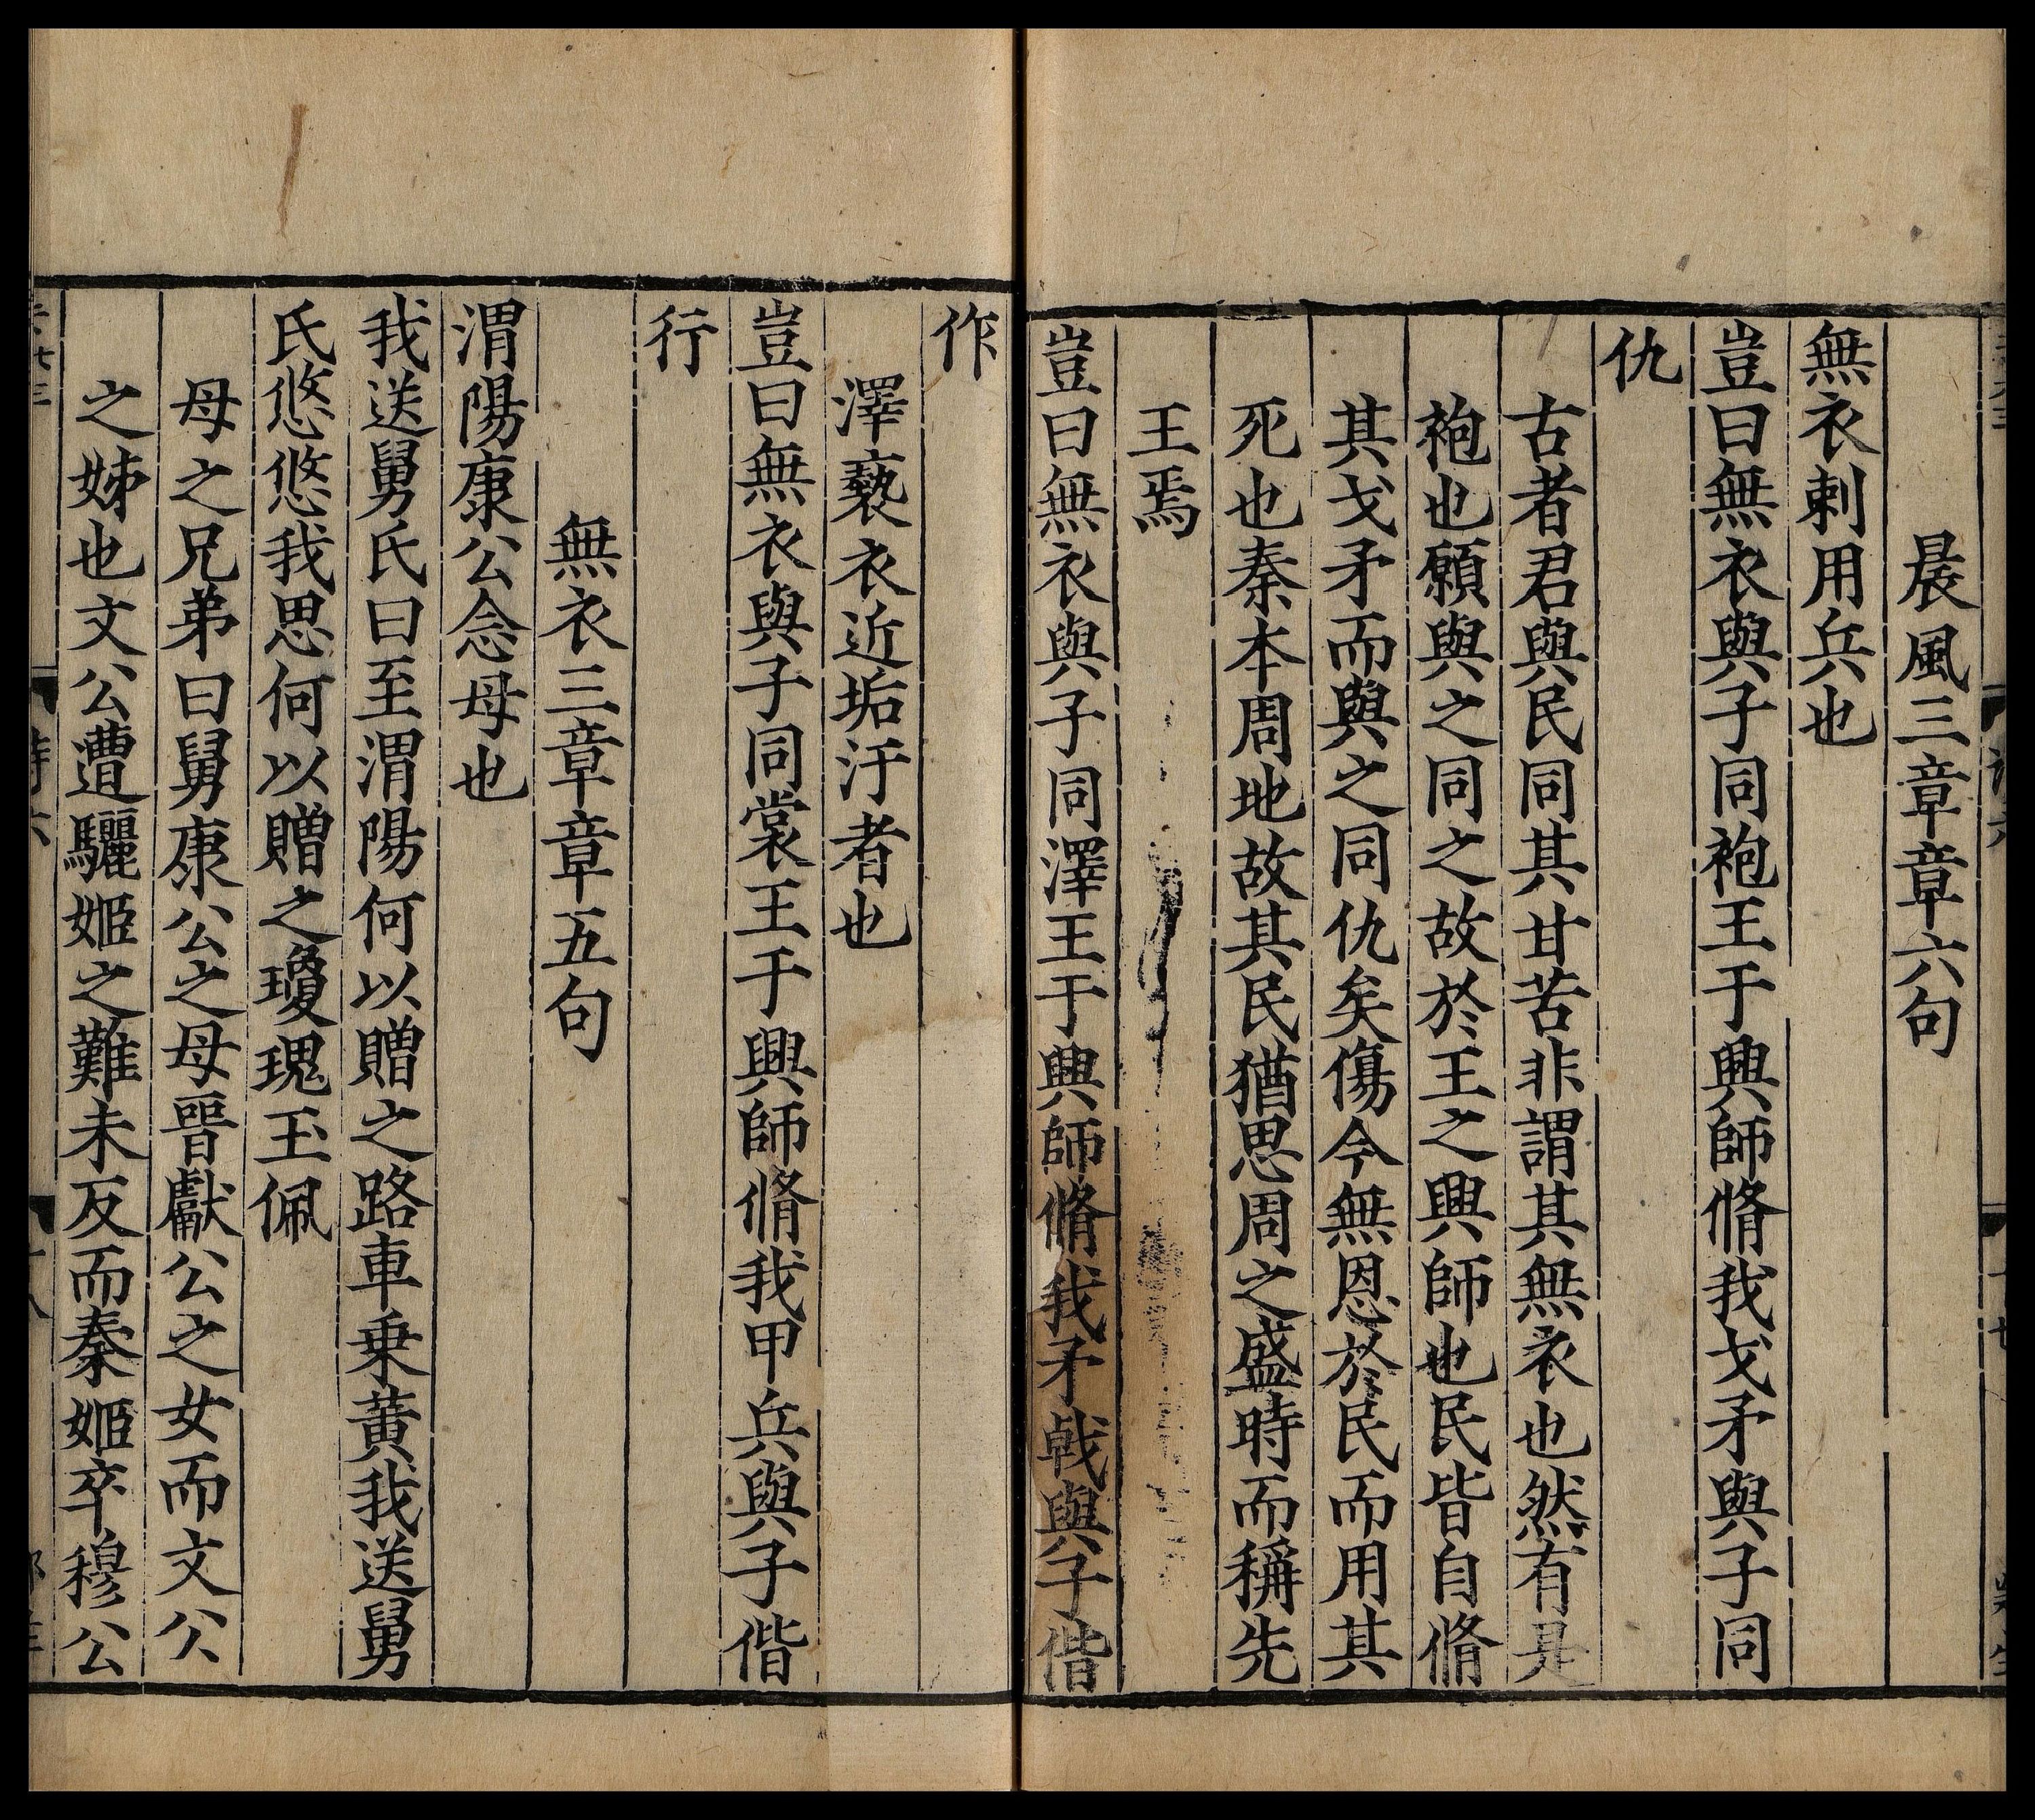 晨風三章章六句
無衣刺用兵也
豈曰無衣與子同袍王于興師脩我戈矛與子同
仇
古者君與民同其甘苦非謂其無衣也然有是
袍也願與之同之故於王之興師也民皆自脩
其戈矛而與之同仇矣傷今無恩於民而用其
死也秦本周地故其民猶思周之盛時而稱先
王焉
豈曰無衣與子同澤王于興師脩我矛戟與子偕
作
澤褻衣近垢汙者也
豈曰無衣與子同裳王于興師脩我甲兵與子偕
行
無衣三章章五句
渭陽康公念母也
我送舅氏曰至渭陽何以贈之路車乗黃我送舅
氏悠悠我思何以贈之瓊瑰玉佩
母之兄弟曰舅康公之母晉獻公之女而文公
之姊也文公遭驪姬之難未反而秦姬卒穆公